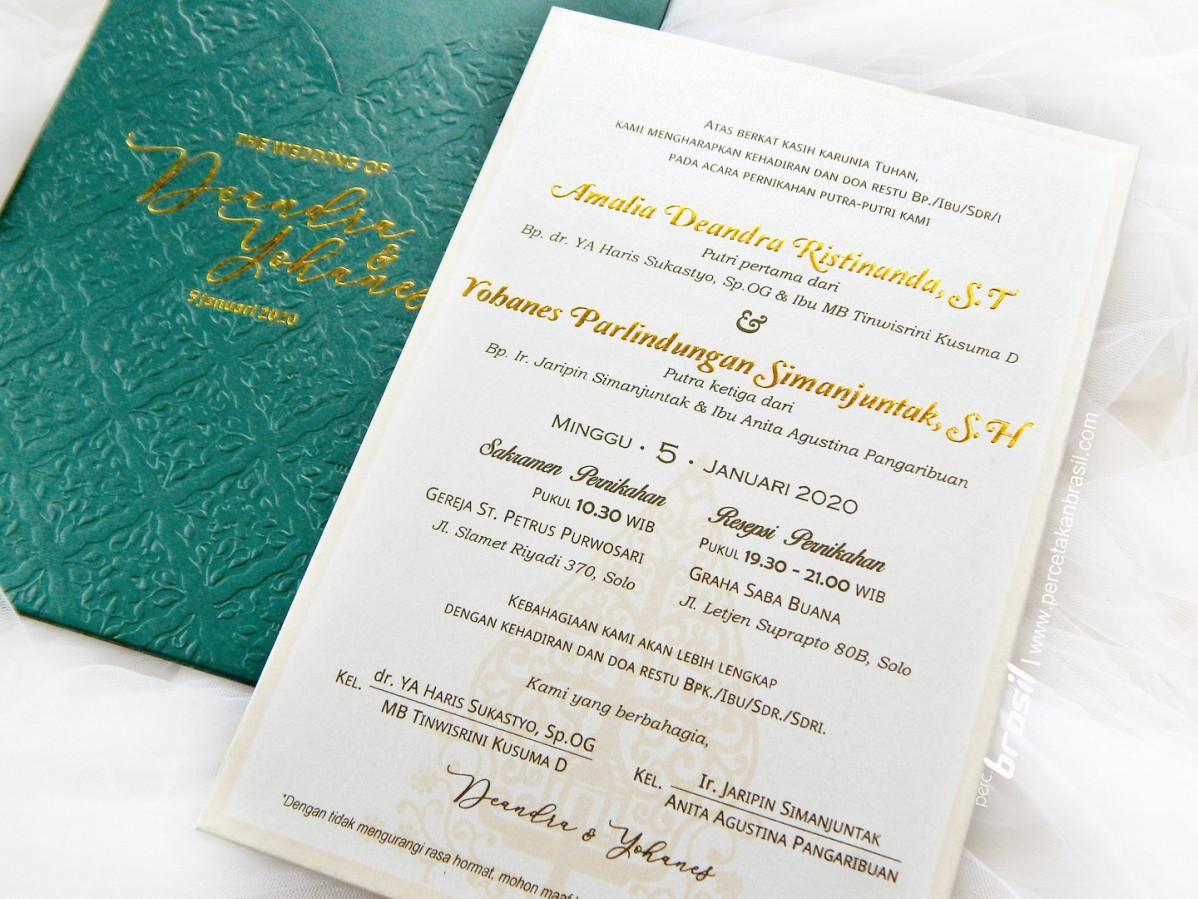 THE WEDDING OF
Deandra
&
Yohanes
5 januari 2020
ATAS BERKAT KASIH KARUNIA TUHAN,
KAMI MENGHARAPKAN KEHADIRAN DAN DOA RESTU BP./IBU/SDR/I
PADA ACARA PERNIKAHAN PUTRA-PUTRI KAMI
Amalia Deandra Ristinanda, S.T
Putri pertama dari
Bp. dr. YA Haris Sukastyo, Sp.OG & Ibu MB Tinwisrini Kusuma D
&
Yohanes Parlindungan Simanjuntak, S.H
Putra ketiga dari
Bp. Ir. Jaripin Simanjuntak & Ibu Anita Agustina Pangaribuan
MINGGU • 5 • JANUARI 2020
Sakramen Pernikahan
PUKUL 10.30 WIB
GEREJA ST. PETRUS PURWOSARI
Jl. Slamet Riyadi 370, Solo
Resepsi Pernikahan
PUKUL 19.30 - 21.00 WIB
GRAHA SABA BUANA
Jl. Letjen Suprapto 80B, Solo
KEBAHAGIAAN KAMI AKAN LEBIH LENGKAP
DENGAN KEHADIRAN DAN DOA RESTU BPK./IBU/SDR./SDRI.
Kami yang berbahagia,
KEL. dr. YA HARIS SUKASTYO, Sp.OG
MB TINWISRINI KUSUMA D
KEL. Ir. JARIPIN SIMANJUNTAK
ANITA AGUSTINA PANGARIBUAN
Deandra & Yohanes
*Dengan tidak mengurangi rasa hormat, mohon maaf
perc. brasil | www.percetakanbrasil.com